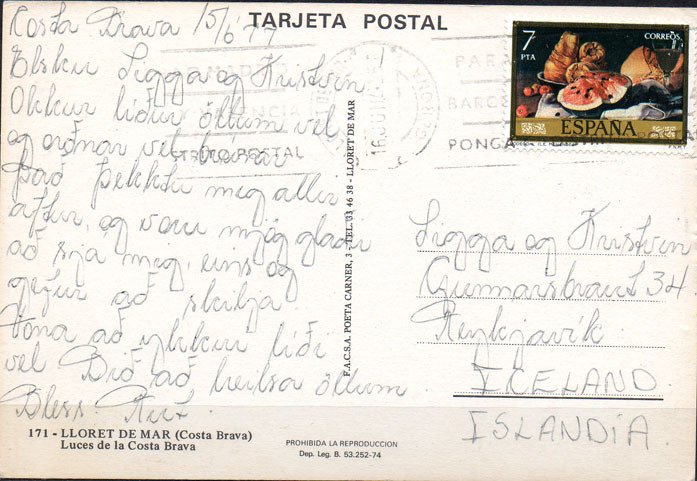 TARJETA POSTAL
Costa Brava 15/6 77
Elsku Sigga og Kristvin!
Okkur líður öllum vel
og orðnar vel brúnar
Það þekktu mig allir
aftur, og voru mjög glaðir
að sjá mig, eins og
gefur að skilja.
Vona að ykkur líði
vel Bið að heilsa öllum
Bless
171 - LLORET DE MAR (Costa Brava)
Luces de la Costa Brava
PROHIBIDA LA REPRODUCCION
Dep. Leg. B. 53.252-74
F.A.C.S.A. POETA CARNER, 3 - TEL. 33 46 38 - LLORET DE MAR
7
PTA
CORREOS
ESPAÑA
PARA
BARCE
PONGA
POSTAL
16 JUN
Sigga og Kristvin
Gunnarsbraut 34
Reykjavík.
ICELAND
ISLANDIA.